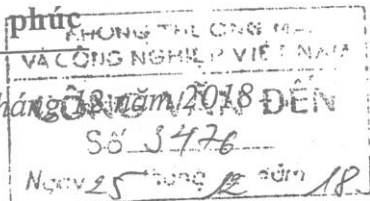 phúc
PHÒNG THƯƠNG MẠI
VÀ CÔNG NGHIỆP VIỆT NAM
tháng 12 năm 2018
CÔNG VĂN ĐẾN
Số 3476
Ngày 25 tháng 12 năm 18